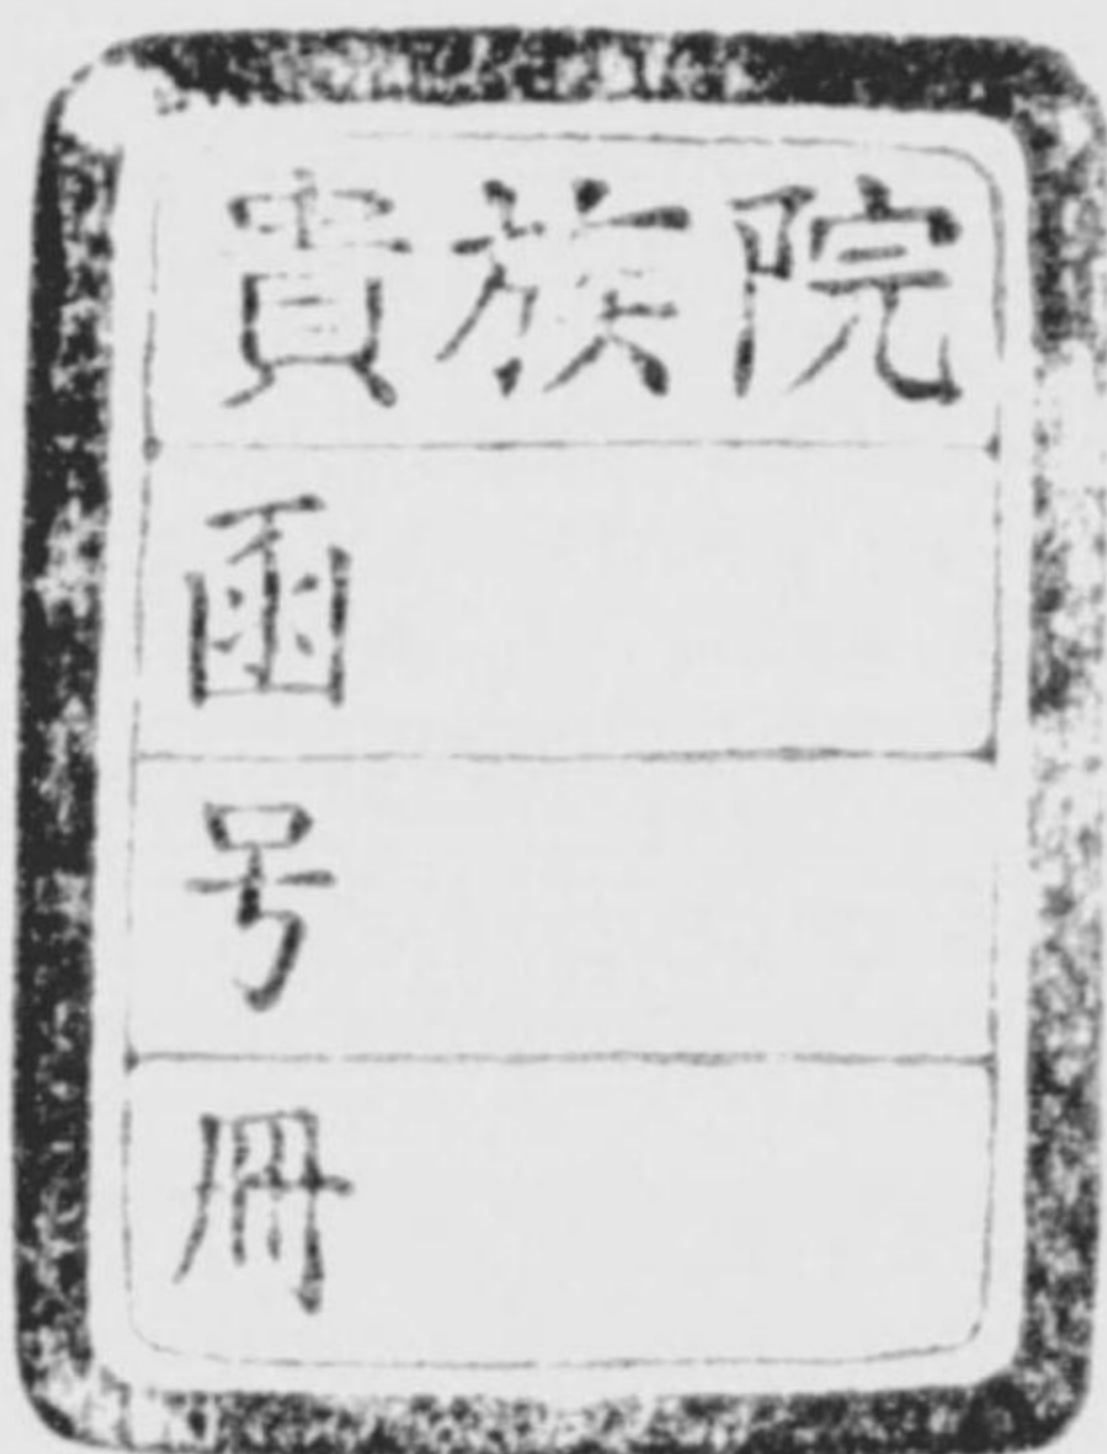 貴族院
函
号
冊